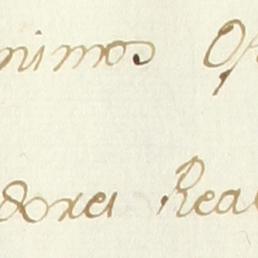 nimos Of
dores Rea